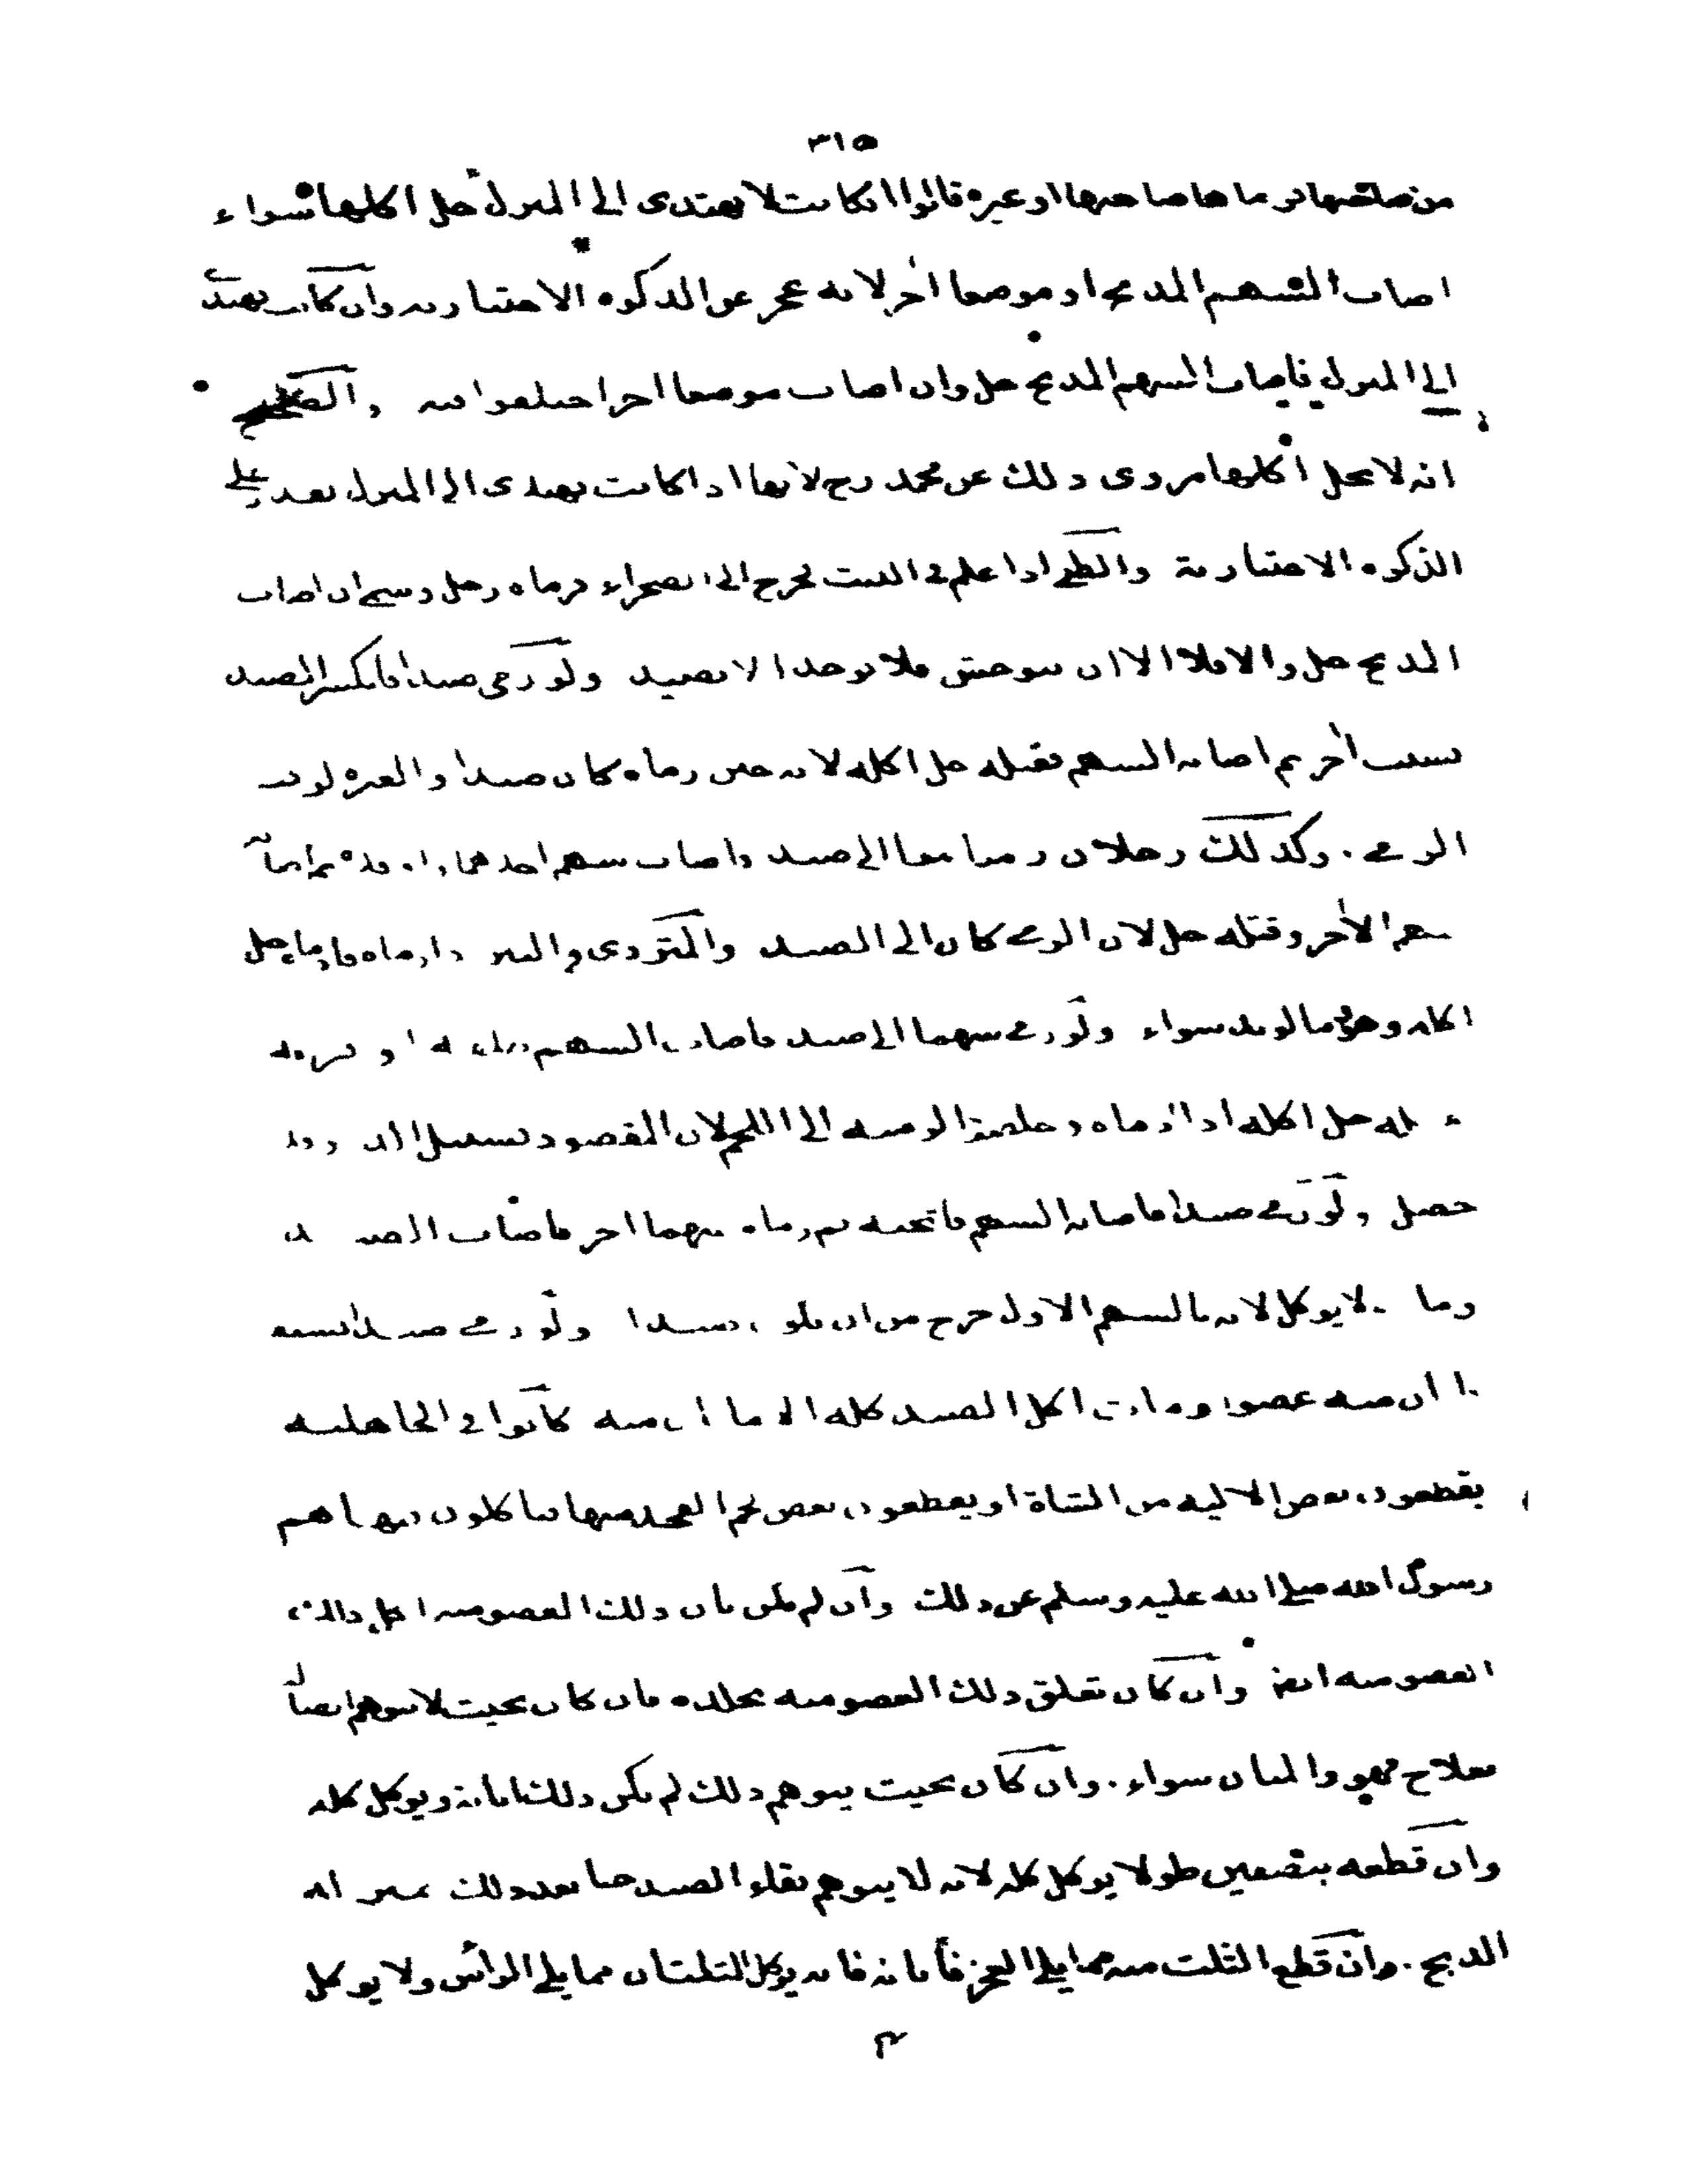 ٣١٥
من صاحبها فرماها صاحبها او غيره قالوا ان كانت لا يهتدى الى المنزل حل اكلها سواء
اصاب السهم المذبح او موضعا اخر لانه عجز عن الذكوة الاختيارية وان كانت يهتدى
الى المنزل فاصاب السهم المذبح حل وان اصاب موضعا اخر اختلفوا فيه والصحيح
انه لا يحل اكلها مروى ذلك عن محمد رح لانها اذا كانت يهتدى الى المنزل يقدر على
الذكوة الاختيارية والظبى اذا علم فى البيت فخرج الى الصحراء فرماه رجل وسمى ان اصاب
المذبح حل والا فلا الا ان يتوحش فلا يوخذ الا بصيد ولو رمى صيدا فانكسر الصيد
بسبب اخر ثم اصابه السهم فقتله حل اكله لانه حين رماه كان صيدا والعبرة لوقت
الرمى . وكذلك رجلان رميا معا الى صيد واصاب سهم احدهما ثم اصابه
سهم الاخر وقتله حل لان الرمى كان الى الصيد والمتردى فى البير اذا رماه فادماه حل
اكله وهو مالو ند سواء ولو رمى سهما الى صيد فاصاب السهم ظلفه او قرنه
حل اكله اذا ادماه وخلصت الرمية الى اللحم لان المقصود تسييل الدم وقد
حصل ولو رمى صيدا فاصابه السهم فاثخنه ثم رماه سهما اخر فاصاب الصيد
ومات لا يوكل لانه بالسهم الاول خرج من ان يكون صيدا ولو رمى صيدا بسيف
ابان منه عضوا ومات اكل الصيد كله الا ما ابان منه كانوا فى الجاهلية
يقطعون بعض الالية من الشاة او يقطعون بعض لحم العجز منها فياكلون فنهاهم
رسول الله صلى الله عليه وسلم عن ذلك وان لم يكن بان ذلك العضو منه اكل ذلك
العضو منه ايضا وان كان تعلق ذلك العضو منه بجلده فان كان بحيث لا يتوهم اتصاله
بعلاج فهو والمبان سواء . وان كان بحيث يتوهم ذلك لم يكن ذلك ابانة ويوكل كله
وان قطعه بنصفين طولا يوكل كله لانه لا يتوهم بقاء الصيد حيا بعد ذلك بمنزلة
الذبح . وان قطع الثلث منه مما يلى العجز فأبانه فانه يوكل الثلثان مما يلى الرأس ولا يوكل